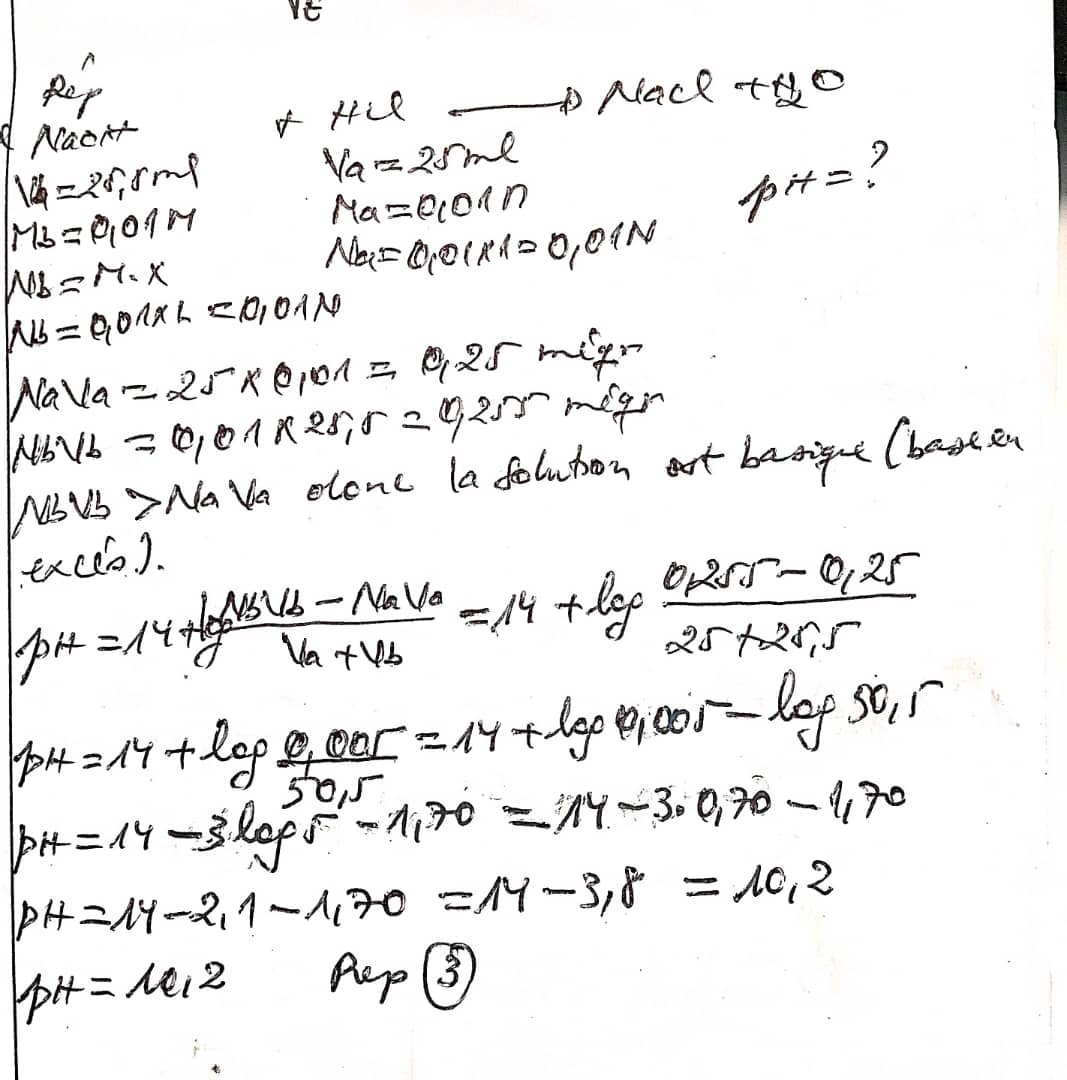 Vt
Rép
NaOH + HCl → NaCl + H2O
Vb = 25,5 ml Va = 25 ml pH = ?
Mb = 0,01 M Ma = 0,01 M
Nb = M.X Na = 0,01 x 1 = 0,01 N
Nb = 0,01 x 1 = 0,01 N
NaVa = 25 x 0,01 = 0,25 méqr
NbVb = 0,01 x 25,5 = 0,255 méqr
NbVb > NaVa donc la solution est basique (base en
excès).
pH = 14 + log (NbVb - NaVa)/(Va + Vb) = 14 + log (0,255 - 0,25)/(25 + 25,5)
pH = 14 + log 0,005/50,5 = 14 + log 0,005 - log 50,5
pH = 14 - 3 log 5 - 1,70 = 14 - 3.0,70 - 1,70
pH = 14 - 2,1 - 1,70 = 14 - 3,8 = 10,2
pH = 10,2 Rep 3